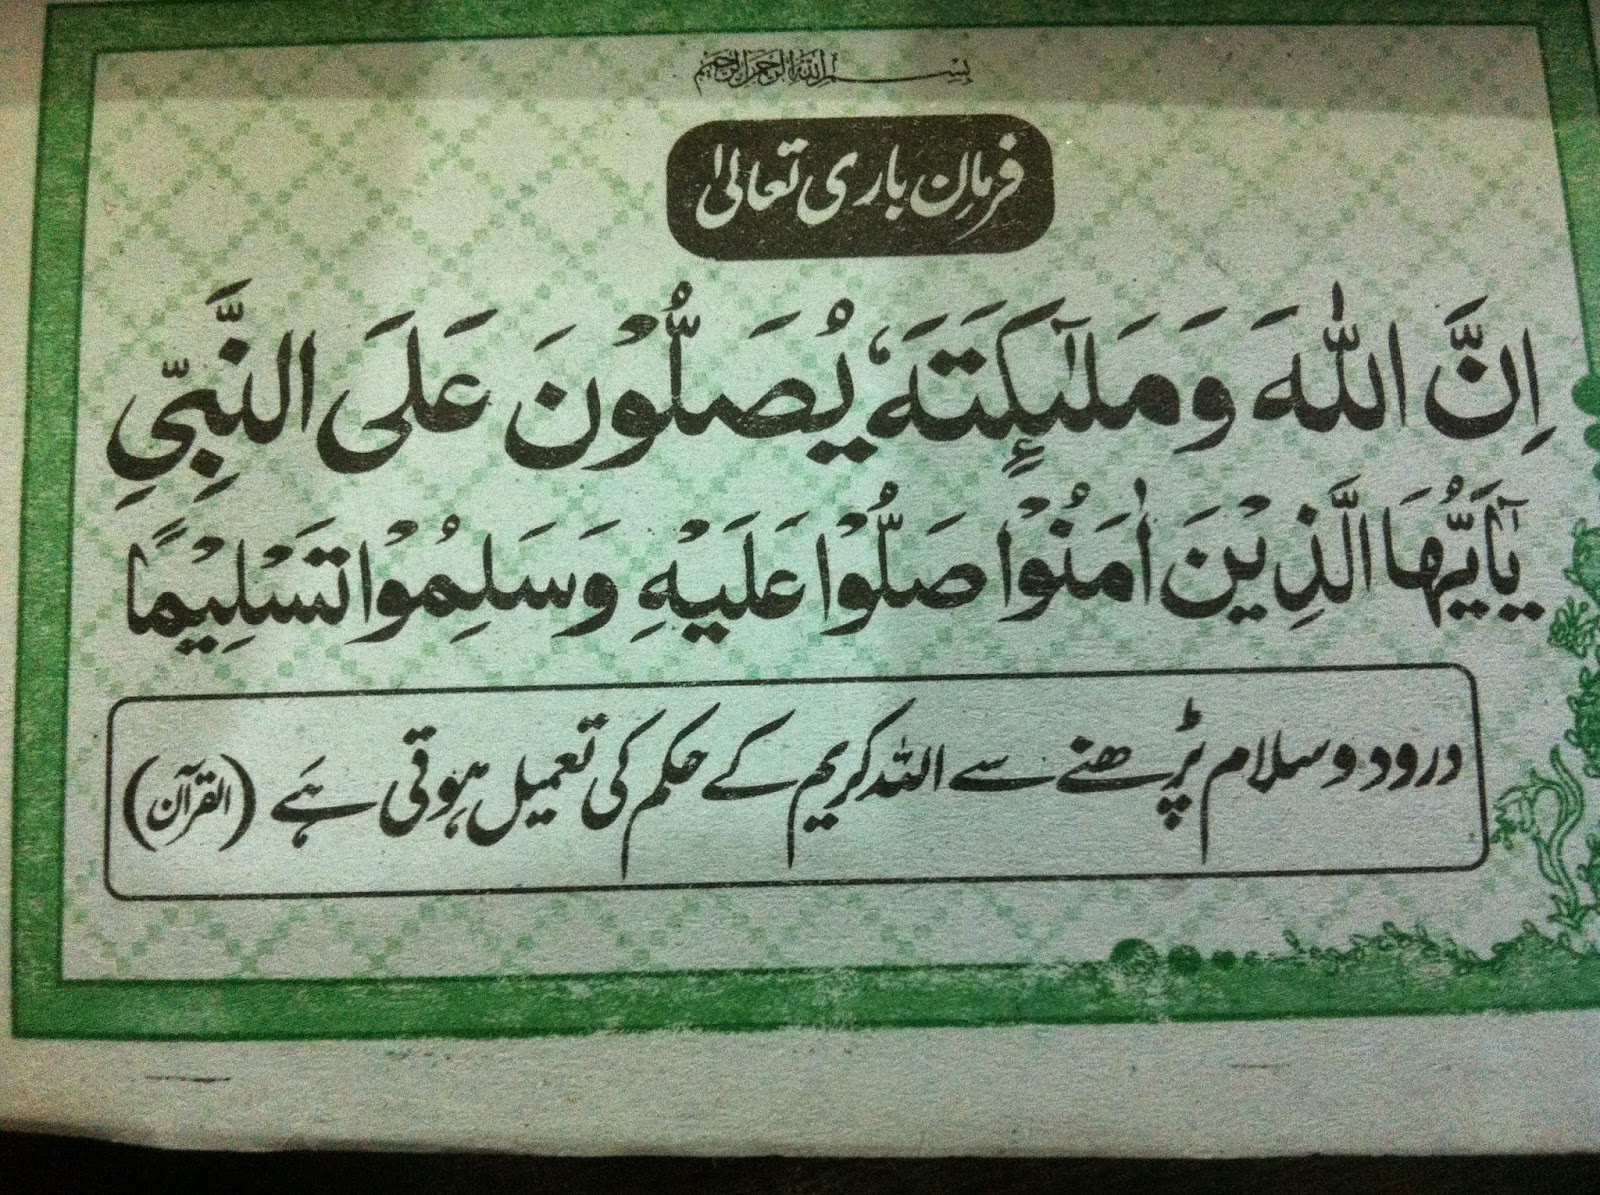 بسم الله الرحمن الرحیم
فرمانِ باری تعالیٰ
اِنَّ اللّٰهَ وَ مَلٰٓىِٕكَتَهٗ یُصَلُّوْنَ عَلَی النَّبِیِّ
یٰۤاَیُّهَا الَّذِیْنَ اٰمَنُوْا صَلُّوْا عَلَیْهِ وَ سَلِمُوْا تَسْلِیْمًا
درود و سلام پڑھنے سے اللہ کریم کے حکم کی تعمیل ہوتی ہے (القرآن)